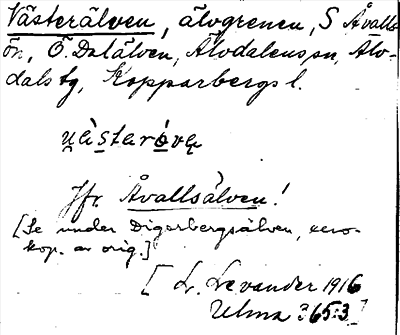 Västerälven, älvgrenen, S Åvalls-
ön, Ö. Dalälven, Älvdalens sn, Älv-
dals tg, Kopparbergs l.
u̯ä̀starǫ́vą
Jfr Åvallsälven!
[Se under Digerbergsälven, xero-
kop. av orig.]
[L. Levander 1916
Ulma 365:3]